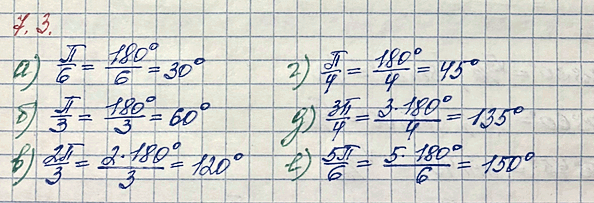 7.3.
а) π/6 = 180°/6 = 30°
б) π/3 = 180°/3 = 60°
в) 2π/3 = 2·180°/3 = 120°
г) π/4 = 180°/4 = 45°
д) 3π/4 = 3·180°/4 = 135°
е) 5π/6 = 5·180°/6 = 150°